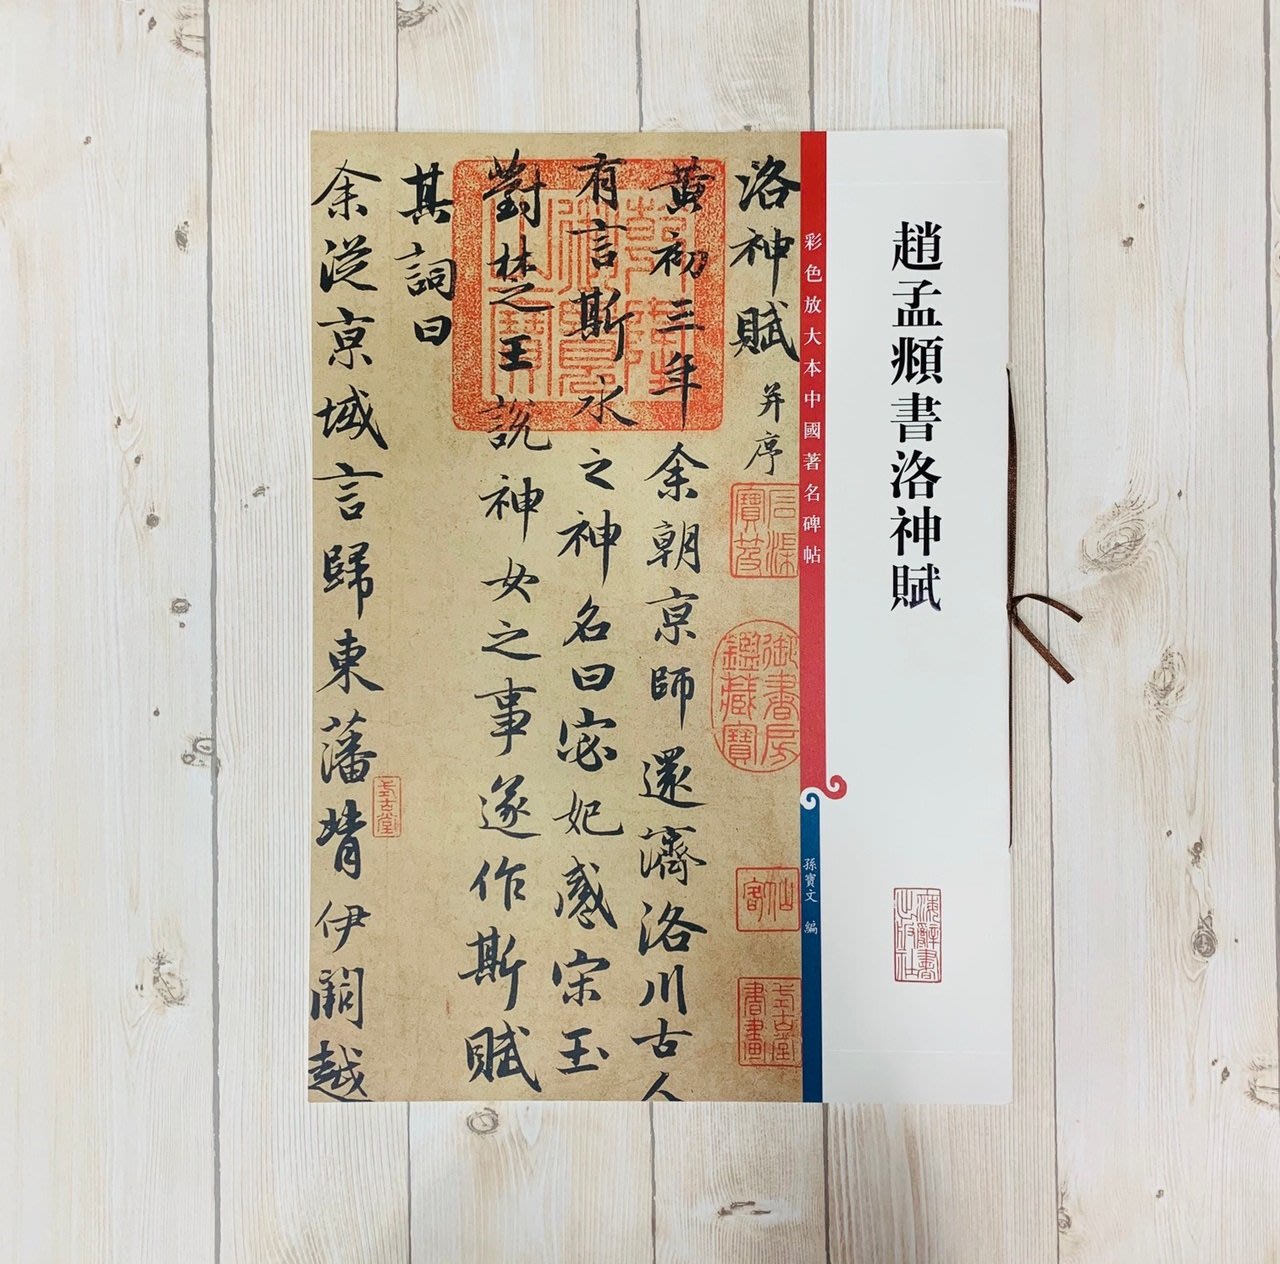 趙孟頫書洛神賦
海辭書出版社
彩色放大本中國著名碑帖
孫寶文 編
洛神賦 并序
黄初三年余朝京師還濟洛川古人
有言斯水之神名曰宓妃感宋玉
對楚之王說神女之事遂作斯賦
其詞曰
余從京域言歸東藩背伊闕越
御書房鑑藏寶
式古堂書畫
式古堂